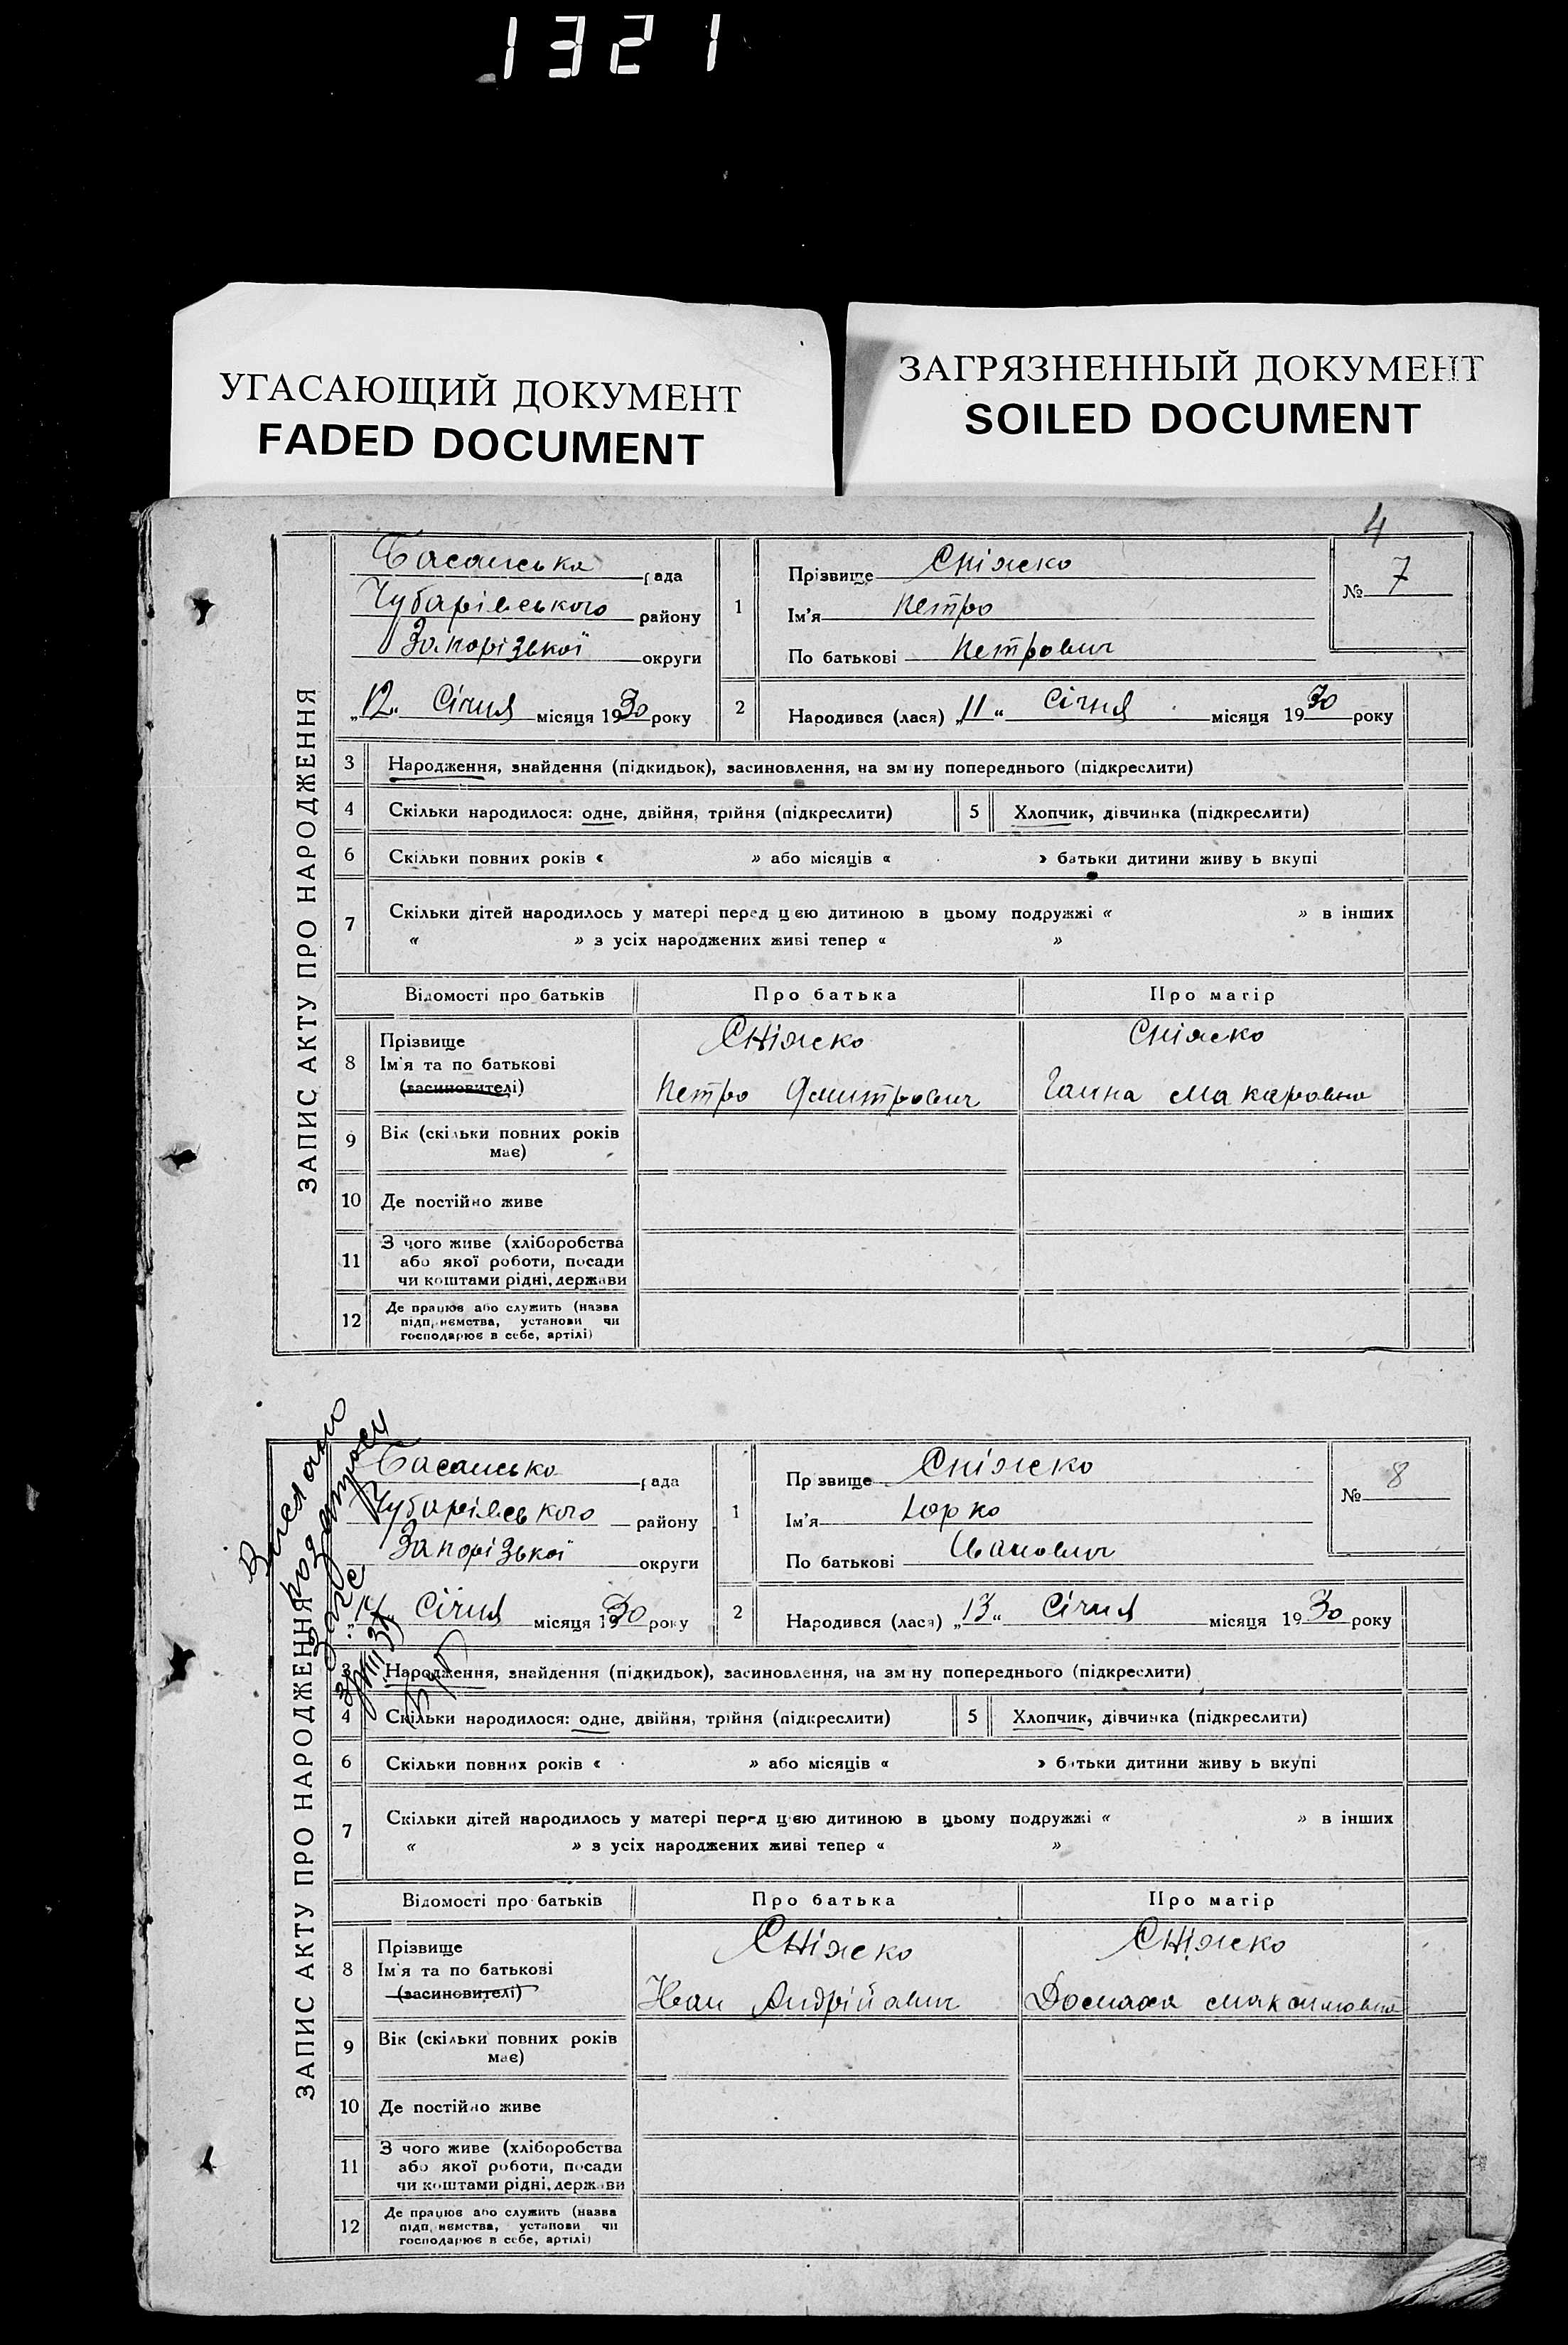 1321
УГАСАЮЩИЙ ДОКУМЕНТ
FADED DOCUMENT
ЗАГРЯЗНЕННЫЙ ДОКУМЕНТ
SOILED DOCUMENT
4
ЗАПИС АКТУ ПРО НАРОДЖЕННЯ
Басанська рада
Чубарівського району
Запорізької округи
„12“ Січня місяця 1930 року
1
Прізвище Сніжко
Ім'я Петро
По батькові Петрович
№ 7
2 Народився (лася) „11“ Січня місяця 1930 року
3 Народження, знайдення (підкидьок), засиновлення, на зм ну попереднього (підкреслити)
4 Скільки народилося: одне, двійня, трійня (підкреслити) 5 Хлопчик, дівчинка (підкреслити)
6 Скільки повних років « » або місяців « » батьки дитини живу ь вкупі
7 Скільки дітей народилось у матері перед цією дитиною в цьому подружжі « » в інших
« » з усіх народжених живі тепер « »
Відомості про батьків Про батька Про матір
8 Прізвище Сніжко Сніжко
Ім'я та по батькові
(засиновителі) Петро Дмитрович Ганна Макаровна
9 Вік (скільки повних років
має)
10 Де постійно живе
11 З чого живе (хліборобства
або якої роботи, посади
чи коштами рідні, держави
12 Де працює або служить (назва
підприємства, установи чи
господарює в себе, артілі)
ЗАПИС АКТУ ПРО НАРОДЖЕННЯ
Вислано
загс
Басансько рада
Чубарівського району
Запорізької округи
„14“ Січня місяця 1930 року
1
Прізвище Сніжко
Ім'я Юрко
По батькові Іванович
№ 8
2 Народився (лася) „13“ Січня місяця 1930 року
3 Народження, знайдення (підкидьок), засиновлення, на зм ну попереднього (підкреслити)
4 Скільки народилося: одне, двійня, трійня (підкреслити) 5 Хлопчик, дівчинка (підкреслити)
6 Скільки повних років « » або місяців « » батьки дитини живу ь вкупі
7 Скільки дітей народилось у матері перед цією дитиною в цьому подружжі « » в інших
« » з усіх народжених живі тепер « »
Відомості про батьків Про батька Про матір
8 Прізвище Сніжко Сніжко
Ім'я та по батькові
(засиновителі) Іван Андрійович Домаха Максимовна
9 Вік (скільки повних років
має)
10 Де постійно живе
11 З чого живе (хліборобства
або якої роботи, посади
чи коштами рідні, держави
12 Де працює або служить (назва
підприємства, установи чи
господарює в себе, артілі)